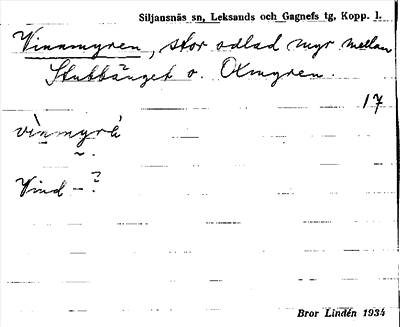 Siljansnäs sn, Leksands och Gagnefs tg, Kopp. l.
Vinnmyren, stor odlad myr mellan
Stubbänget o. Oxmyren.
17
vìnmyrà
Vind - ?
Bror Lindén 1934